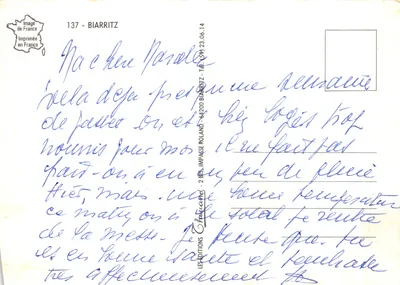 Image
de France
Imprimée
en France
137 - BIARRITZ
Ma chère
voilà déjà presque une semaine
de passée on est bien logés trop
nourris pour moi il ne fait pas
on a eu un peu de pluie
Hier, mais une bonne température
ce matin on a le soleil je rentre
de la messe. Je pense que tu
es en bonne santé et
très affectueusement
LES EDITIONS
2 BIS, IMPASSE ROLAND - 64200 BIARRITZ - Tél. 59.23.06.14